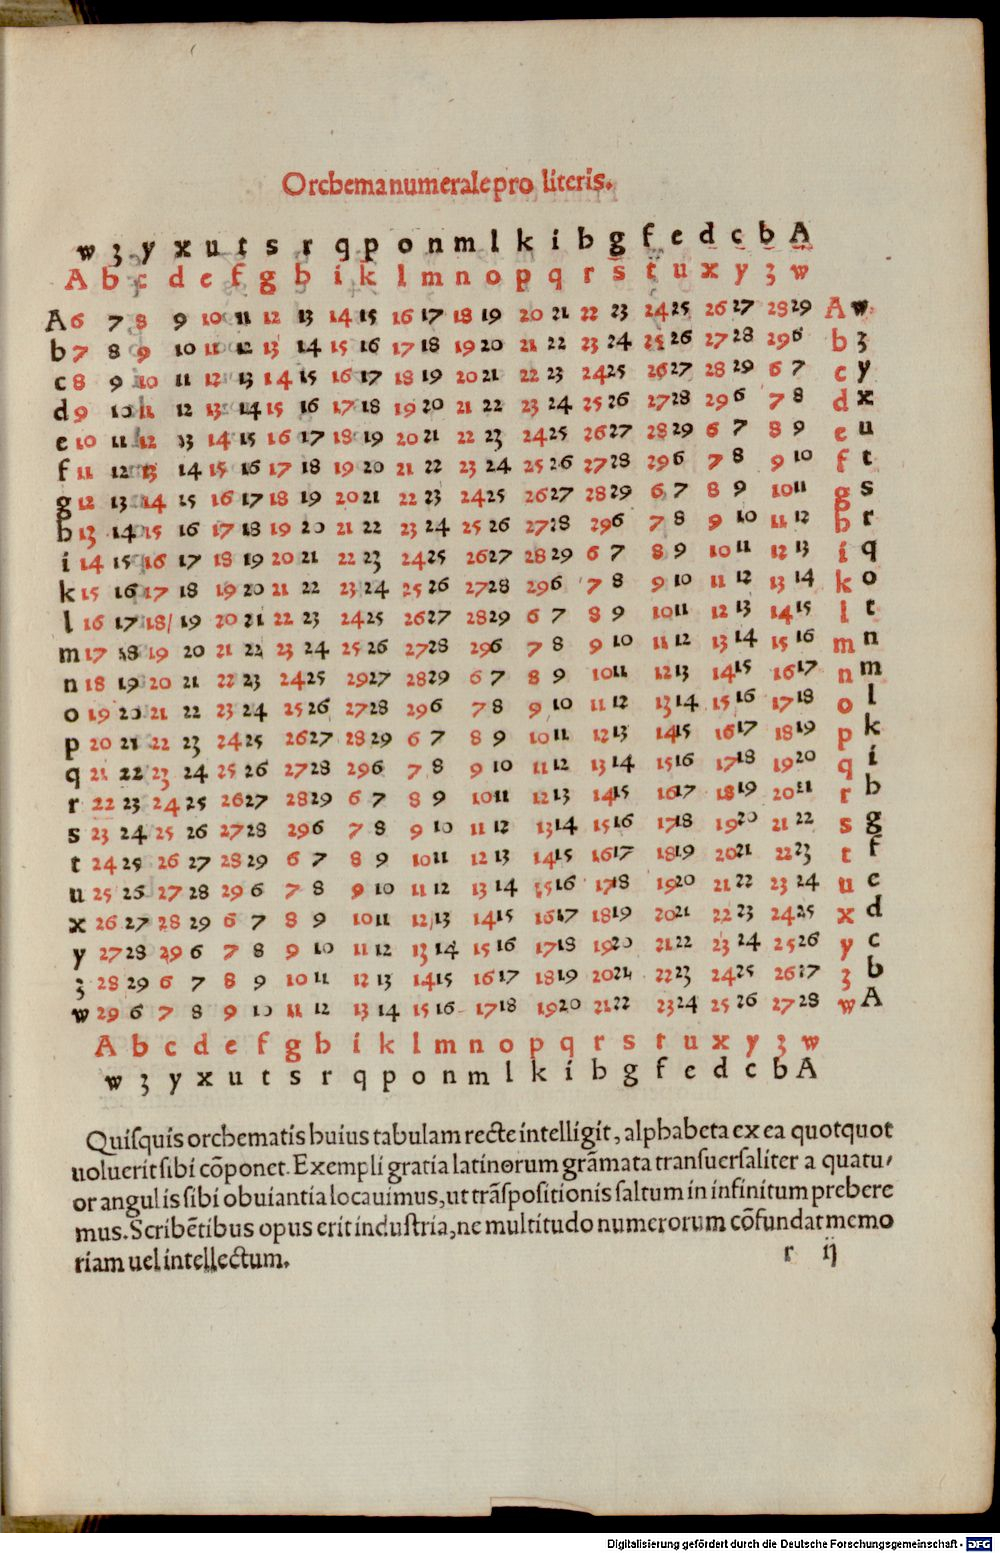 Orchema numerale pro literis.
w z y x u t s r q p o n m l k i h g f e d c b A
A b c d e f g h i k l m n o p q r s t u x y z w
A 6 7 8 9 10 11 12 13 14 15 16 17 18 19 20 21 22 23 24 25 26 27 28 29 A w
b 7 8 9 10 11 12 13 14 15 16 17 18 19 20 21 22 23 24 25 26 27 28 29 6 b z
c 8 9 10 11 12 13 14 15 16 17 18 19 20 21 22 23 24 25 26 27 28 29 6 7 c y
d 9 10 11 12 13 14 15 16 17 18 19 20 21 22 23 24 25 26 27 28 29 6 7 8 d x
e 10 11 12 13 14 15 16 17 18 19 20 21 22 23 24 25 26 27 28 29 6 7 8 9 e u
f 11 12 13 14 15 16 17 18 19 20 21 22 23 24 25 26 27 28 29 6 7 8 9 10 f t
g 12 13 14 15 16 17 18 19 20 21 22 23 24 25 26 27 28 29 6 7 8 9 10 11 g s
h 13 14 15 16 17 18 19 20 21 22 23 24 25 26 27 28 29 6 7 8 9 10 11 12 h r
i 14 15 16 17 18 19 20 21 22 23 24 25 26 27 28 29 6 7 8 9 10 11 12 13 i q
k 15 16 17 18 19 20 21 22 23 24 25 26 27 28 29 6 7 8 9 10 11 12 13 14 k o
l 16 17 18/ 19 20 21 22 23 24 25 26 27 28 29 6 7 8 9 10 11 12 13 14 15 l t
m 17 18 19 20 21 22 23 24 25 26 27 28 29 6 7 8 9 10 11 12 13 14 15 16 m n
n 18 19 20 21 22 23 24 25 29 27 28 29 6 7 8 9 10 11 12 13 14 15 16 17 n m
o 19 20 21 22 23 24 25 26 27 28 29 6 7 8 9 10 11 12 13 14 15 16 17 18 o l
p 20 21 22 23 24 25 26 27 28 29 6 7 8 9 10 11 12 13 14 15 16 17 18 19 p k
q 21 22 23 24 25 26 27 28 29 6 7 8 9 10 11 12 13 14 15 16 17 18 19 20 q i
r 22 23 24 25 26 27 28 29 6 7 8 9 10 11 12 13 14 15 16 17 18 19 20 21 r h
s 23 24 25 26 27 28 29 6 7 8 9 10 11 12 13 14 15 16 17 18 19 20 21 22 s g
t 24 25 26 27 28 29 6 7 8 9 10 11 12 13 14 15 16 17 18 19 20 21 22 23 t f
u 25 26 27 28 29 6 7 8 9 10 11 12 13 14 15 16 17 18 19 20 21 22 23 24 u e
x 26 27 28 29 6 7 8 9 10 11 12 13 14 15 16 17 18 19 20 21 22 23 24 25 x d
y 27 28 29 6 7 8 9 10 11 12 13 14 15 16 17 18 19 20 21 22 23 24 25 26 y c
z 28 29 6 7 8 9 10 11 12 13 14 15 16 17 18 19 20 21 22 23 24 25 26 27 z b
w 29 6 7 8 9 10 11 12 13 14 15 16 17 18 19 20 21 22 23 24 25 26 27 28 w A
A b c d e f g h i k l m n o p q r s t u x y z w
w z y x u t s r q p o n m l k i h g f e d c b A
Quiſquis orchematis huius tabulam recte intelligit, alphabeta ex ea quotquot
uoluerit ſibi cōponet. Exempli gratia latinorum grāmata tranſuerſaliter a quatu⸗
or angulis ſibi obuiantia locauimus, ut trāſpoſitionis ſaltum in infinitum prebere
mus. Scribētibus opus erit induſtria, ne multitudo numerorum cōfundat memo
riam uel intellectum.
r ij
Digitalisierung gefördert durch die Deutsche Forschungsgemeinschaft - DFG